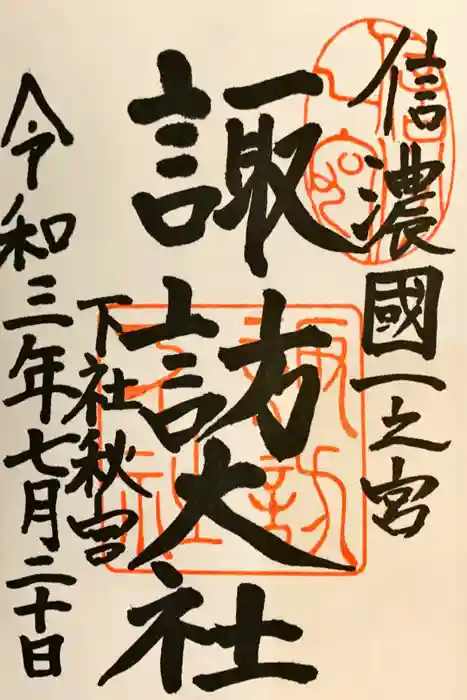 信濃國一之宮
諏訪大社
下社秋宮
令和三年七月二十日